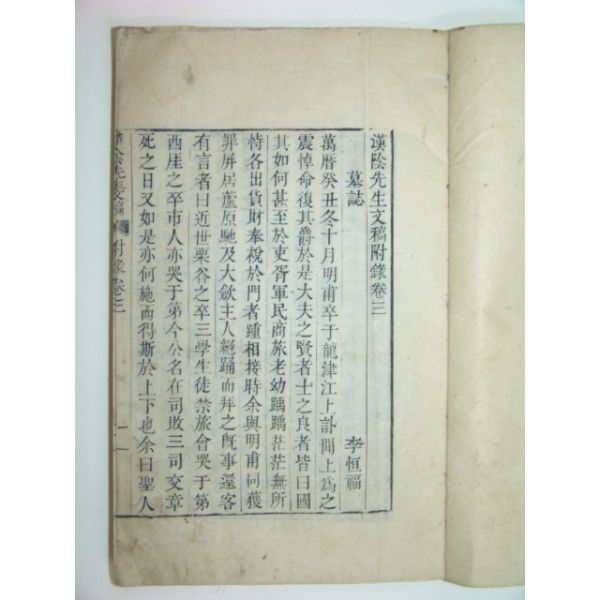 漢陰先生文稿附錄卷三
墓誌
李恒福
萬曆癸丑冬十月明甫卒于龍津江上訃聞上爲之
震悼命復其爵於是大夫之賢者士之良者皆曰國
其如何甚至於吏胥軍民商旅老幼踽踽茫茫無所
恃各出貨財奉稅於門者踵相接時余與明甫同獲
罪屛居蘆原馳及大斂主人絰踊而拜之旣事還客
有言者曰近世栗谷之卒三學生徒禁旅會哭于第
西厓之卒市人亦哭于第今公名在司敗三司交章
死之日又如是亦何施而得斯於上下也余曰聖人
漢陰先生文稿 附錄卷三 一